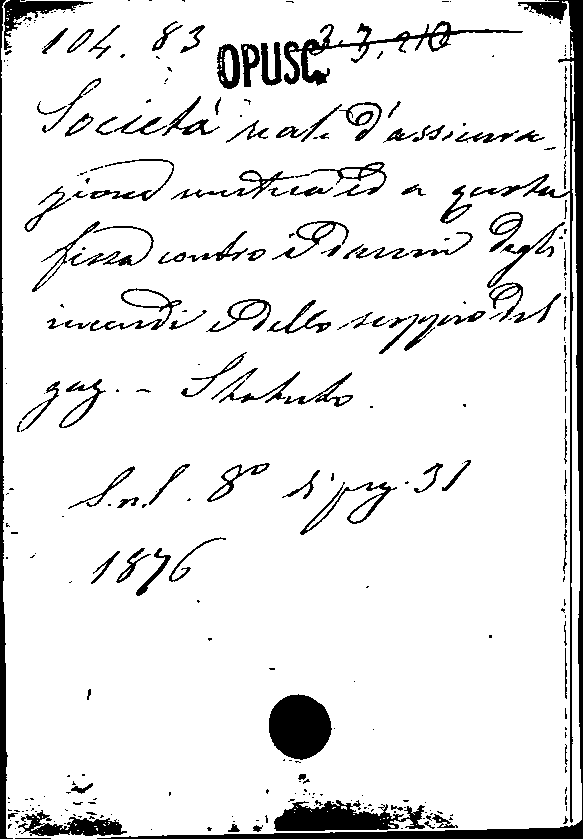 104. 83 OPUSC. 3. 7. 210
Società reale d'assicura-
zione mutua ed a quota
fissa contro i danni degli
incendi e dello scoppio del
gaz. - Statuto.
S.n.l. 8º di pag. 31
1876